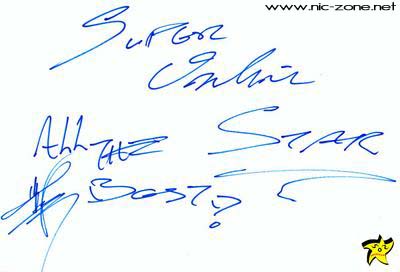 www.nic-zone.net
SUPER
Online
ALL THE STAR
BEST?